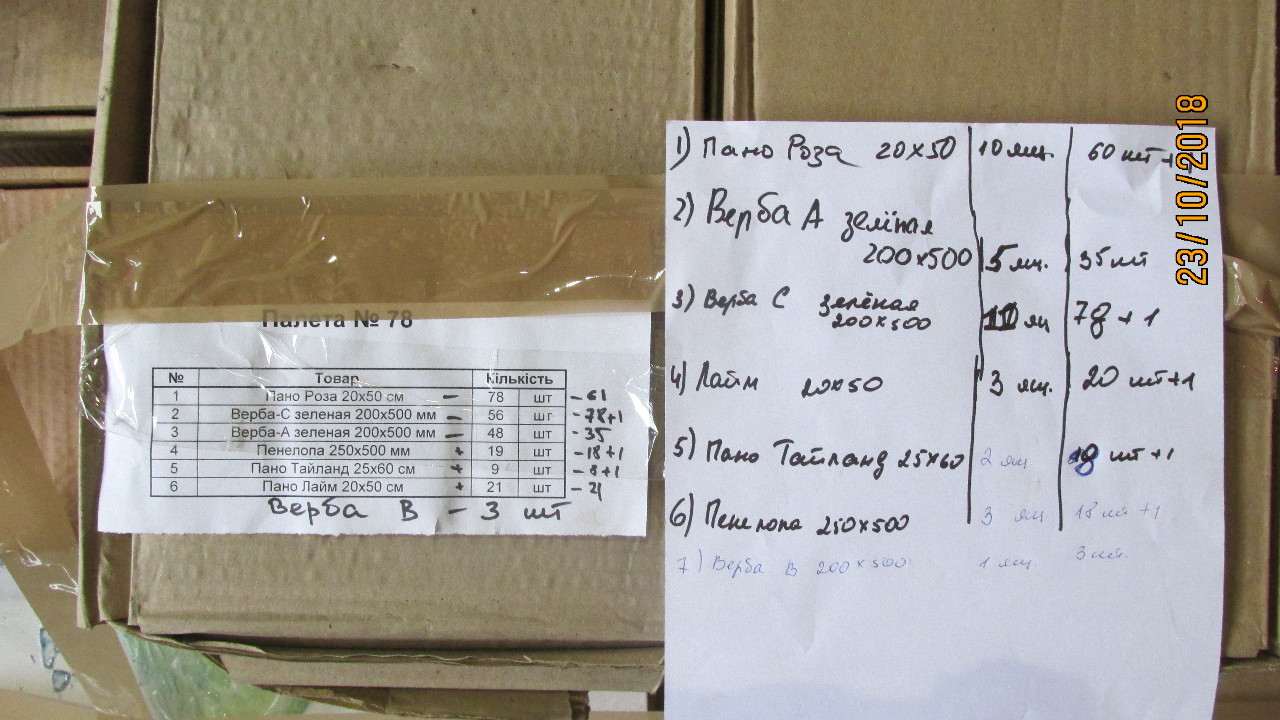 Палета № 78
№ Товар Кількість
1 Пано Роза 20х50 см – 78 шт – 61
2 Верба-С зеленая 200х500 мм – 56 шт – 78+1
3 Верба-А зеленая 200х500 мм – 48 шт – 35
4 Пенелопа 250х500 мм + 19 шт – 18+1
5 Пано Тайланд 25х60 см + 9 шт – 8+1
6 Пано Лайм 20х50 см + 21 шт – 21
Верба В – 3 шт
1) Пано Роза 20х50 10 ящ. 60 шт+
2) Верба А зелёная
200х500 5 ящ. 35 шт
3) Верба С зелёная
200х500 ящ 78 + 1
4) Лайм 20х50 3 ящ. 20 шт+1
5) Пано Тайланд 25х60 2 ящ 8 шт+1
6) Пенелопа 250х500 3 ящ 18 шт +1
7) Верба В 200х500 1 ящ. 3 шт.
23/10/2018